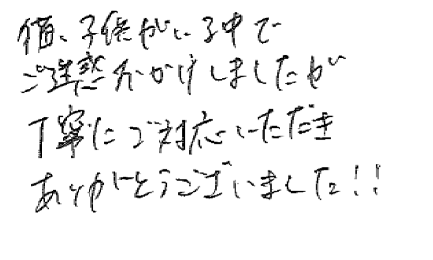 猫、子供がいる中で
ご迷惑おかけしましたが
丁寧にご対応いただき
ありがとうございました!!